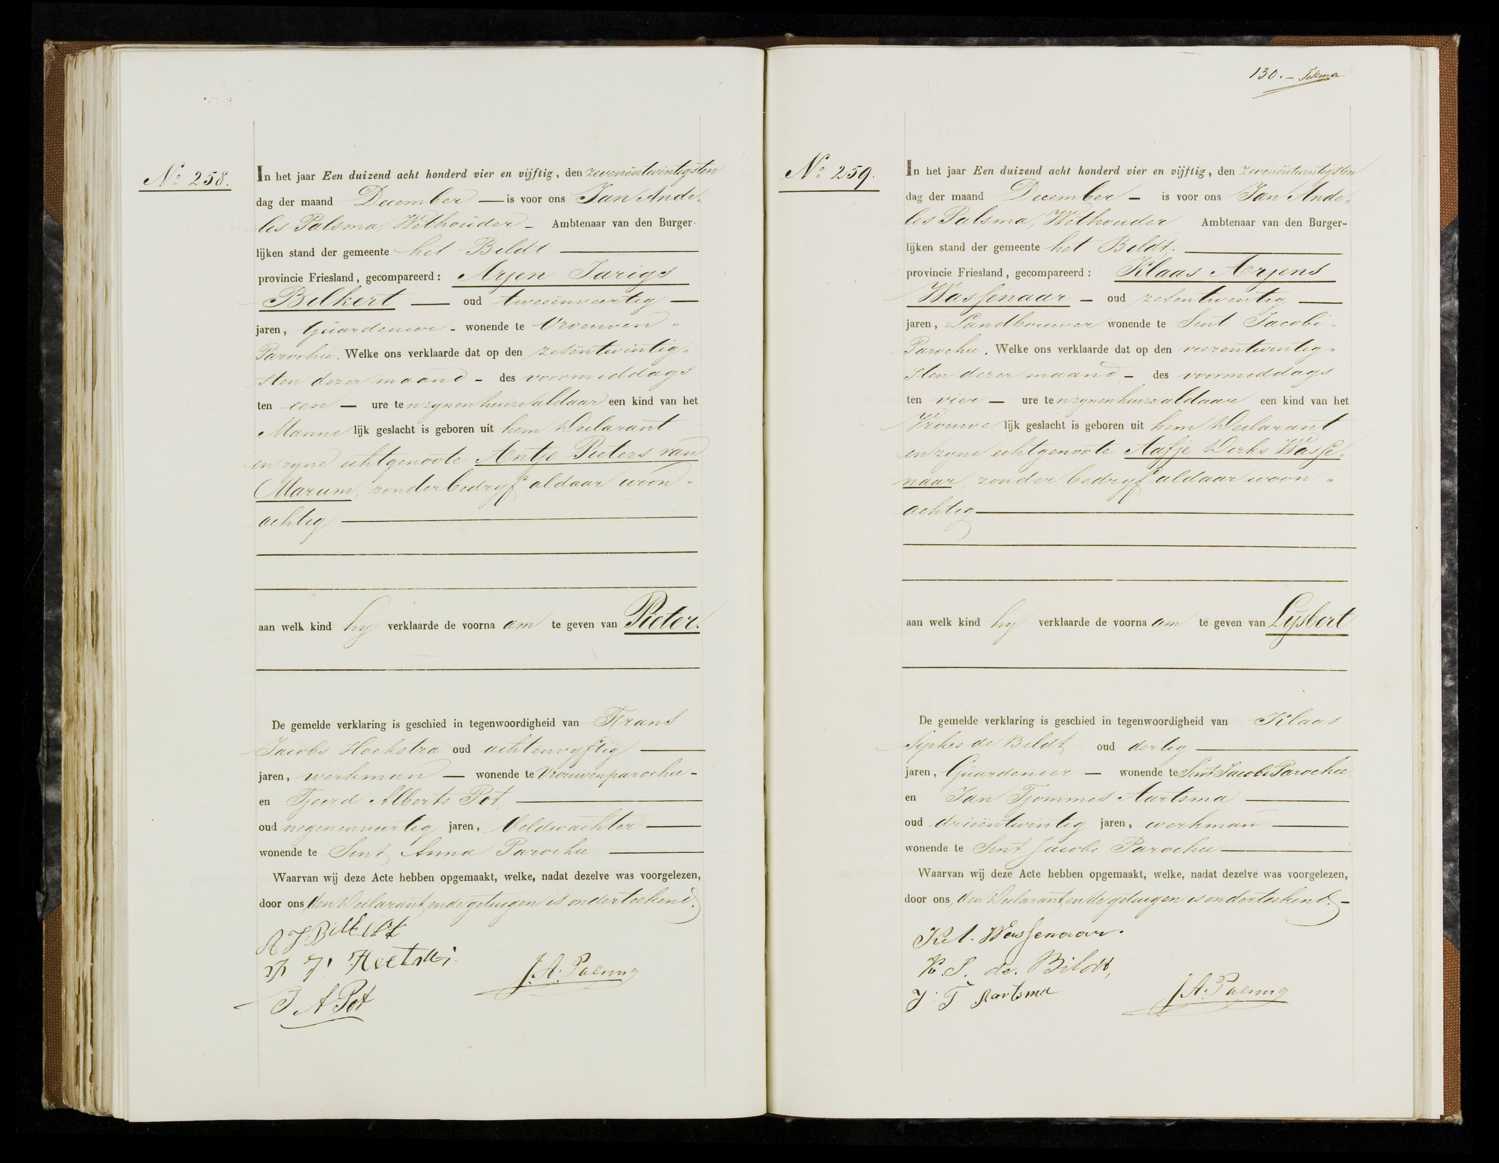 No 258.
In het jaar Een duizend acht honderd vier en vijftig, den zevenentwintigsten
dag der maand December — is voor ons Jan Ande-
les Palsma, Wethouder — Ambtenaar van den Burger-
lijken stand der gemeente het Bildt
provincie Friesland, gecompareerd: Arjen Jarigs
Bilkert — oud tweeenveertig —
jaren, Guardenier - wonende te Vrouwen-
Parochie. Welke ons verklaarde dat op den zesentwintig-
sten dezer maand — des voormiddags
ten een — ure te zynen huize aldaar een kind van het
Manne lijk geslacht is geboren uit hem Declarant
en zyne echtgenoote Antje Pieters van
Marum, zonder bedryf aldaar woon-
achtig
aan welk kind hy verklaarde de voorna am te geven van Pieter.
De gemelde verklaring is geschied in tegenwoordigheid van Frans
Jacobs Hoekstra oud achtenvyftig
jaren, werkman — wonende te Vrouwenparochie -
en Tjeerd Alberts Pot
oud negenenveertig jaren, Veldwachter
wonende te Sint Anna Parochie
Waarvan wij deze Acte hebben opgemaakt, welke, nadat dezelve was voorgelezen,
door ons, den Declarant en de getuigen is onderteekend.
A J Bilkert
F J Hoekstra
T A Pot
J. A. Palsma
130. — Telsma
No 259.
In het jaar Een duizend acht honderd vier en vijftig, den zevenentwintigsten
dag der maand December — is voor ons Jan Ande-
les Palsma, Wethouder Ambtenaar van den Burger-
lijken stand der gemeente het Bildt.
provincie Friesland, gecompareerd: Klaas Arjens
Wassenaar — oud zesentwintig —
jaren, Landbouwer wonende te Sint Jacobi-
Parochie. Welke ons verklaarde dat op den vierentwintig-
sten dezer maand — des voormiddags
ten vier — ure te zynen huize aldaar een kind van het
Vrouwe lijk geslacht is geboren uit hem Declarant
en zyne echtgenoote Aafje Derks Wasse-
naar zonder bedryf aldaar woon-
achtig
aan welk kind hy verklaarde de voorna am te geven van Lysbert
De gemelde verklaring is geschied in tegenwoordigheid van Klaas
Sipkes de Bildt, oud dertig
jaren, Guardenier — wonende te Sint Jacobi Parochie
en Jan Tjommes Aartsma
oud drieentwintig jaren, werkman
wonende te Sint Jacobi Parochie
Waarvan wij deze Acte hebben opgemaakt, welke, nadat dezelve was voorgelezen,
door ons, den Declarant en de getuigen is onderteekend. —
Kl. A. Wassenaar.
K. S. de. Bildt,
J T Aartsma
J. A. Palsma